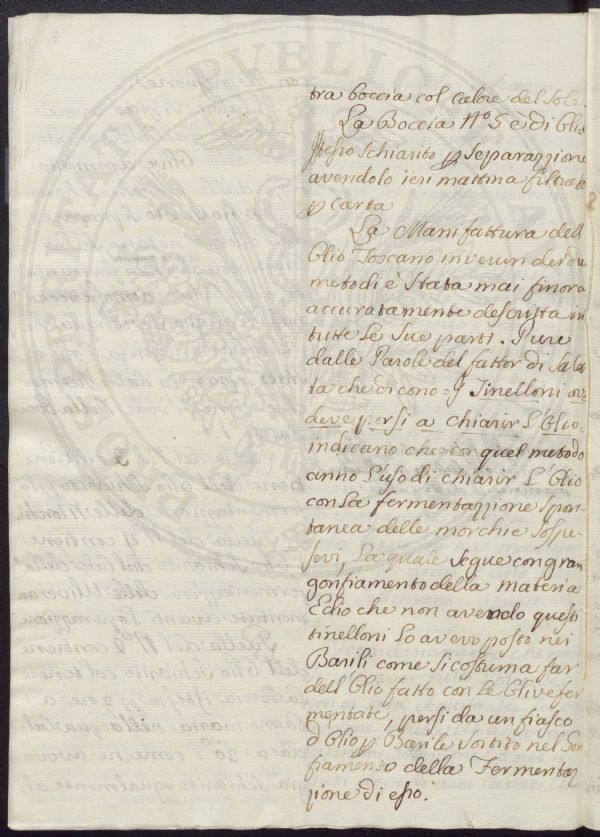 tra boccia col calore del Sole.
La Boccia N.º 5 è di Olio
stesso schiarito p Separazzione
avendolo ieri mattina filtrato
p carta
La Manifattura dell
Olio Toscano in verun de due
metodi è Stata mai finora
accuratamente descritta in
tutte Le Sue parti. Pure
dalle Parole del fattor di
ta che dicono = I Tinelloni ove
deve porsi a chiarir L'Olio =
indicano che con quel metodo
anno L'uso di chiarir L'Olio
con La fermentazzione Spon
tanea delle morchie Sospe
sevi, La quale segue con gran
gonfiamento della materia
Ed io che non avendo questi
tinelloni Lo avevo posto nei
Barili come si costuma far
dell Olio fatto con Le Olive fer
mentate, persi da un fiasco
d Olio p Barile Sortito nel Gon
fiamento della Fermentaz
zione di esso.